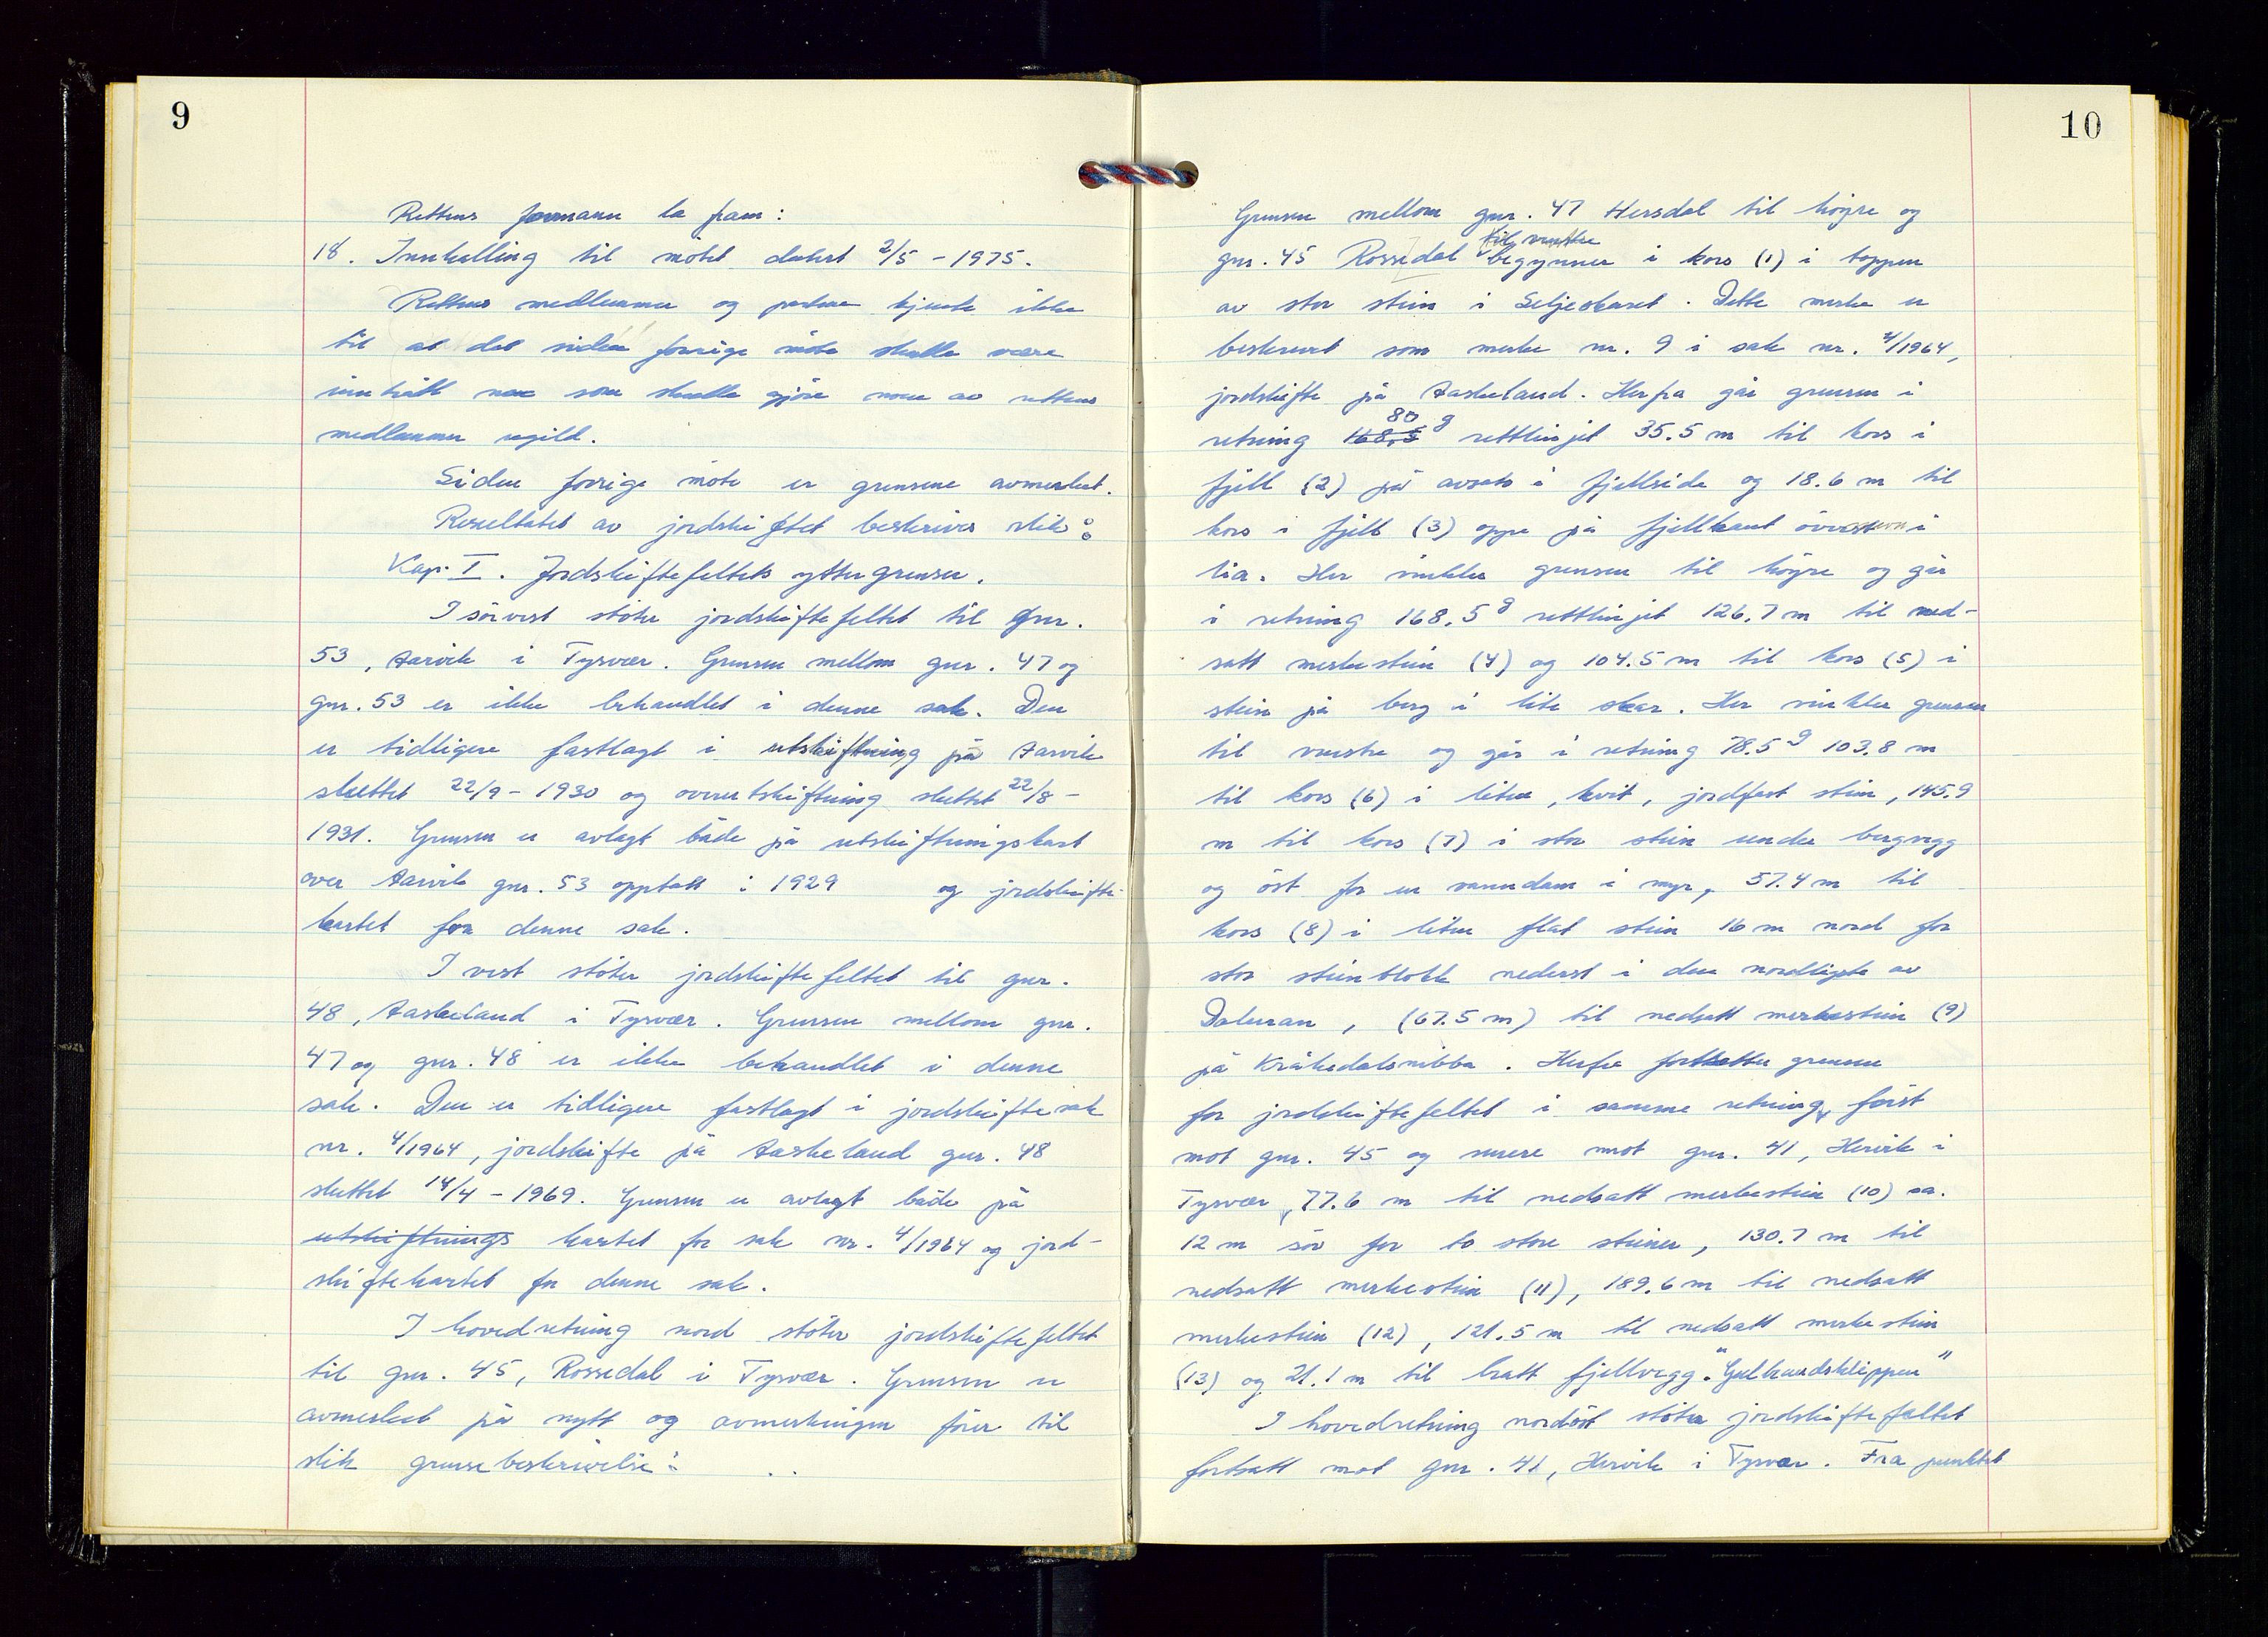 9
Rettens formann la fram:
18. Innkalling til møtet datert 2/5 - 1975.
Rettens medlemmer og partene kjente ikke
til at det siden forrige møte skulle være
inntrått noe som skulle gjöre noen av rettens
medlemmer ugild.
Siden forrige möte er grensene avmerket.
Resultatet av jordskiftet beskrives slik:
Kap. I. Jordskiftefeltets yttergrenser.
I sörvest stöter jordskiftefeltet til gnr.
53, Aarvik i Tysvær. Grensen mellom gnr. 47 og
gnr. 53 er ikke behandlet i denne sak. Den
er tidligere fastlagt i utskiftning på Aarvik
sluttet 22/9 - 1930 og overutskiftning sluttet 22/8 -
1931. Grensen er avlagt både på utskiftningskart
over Aarvik gnr. 53 opptatt i 1929 og jordskifte-
kartet for denne sak.
I vest stöter jordskiftefeltet til gnr.
48, Aaskeland i Tysvær. Grensen mellom gnr.
47 og gnr. 48 er ikke behandlet i denne
sak. Den er tidligere fastlagt i jordskiftesak
nr. 4/1964, jordskifte på Aaskeland gnr. 48
sluttet 14/4 - 1969. Grensen er avlagt både på
utskiftnings kartet for sak nr. 4/1964 og jord-
skiftekartet for denne sak.
I hovedretning nord stöter jordskiftefeltet
til gnr. 45, Rossedal i Tysvær. Grensen er
avmerket på nytt og avmerkingen förer til
slik grensebeskrivelse:
10
Grensen mellom gnr. 47 Hersdal til högre og
til venstre
gnr. 45 Rossedal begynner i kors (1) i toppen
av stor stein i Seljeskaret. Dette merke er
beskrevet som merke nr. 9 i sak nr. 4/1964,
jordskifte på Aaskeland. Herfra går grensen i
80
retning 168.5 g rettlinjet 35.5 m til kors i
fjell (2) på avsats i fjellside og 18.6 m til
kors i fjell (3) oppe på fjellkant överst i
lia. Her vinkler grensen til högre og går
i retning 168.5 g rettlinjet 126.7 m til ned-
satt merkestein (4) og 104.5 m til kors (5) i
stein på berg i lite skar. Her vinkler grensen
til venstre og går i retning 78.5 g 103.8 m
til kors (6) i liten, kvit, jordfast stein, 145.9
m til kors (7) i stor stein under bergvegg
og öst for en vanndam i myr, 57.4 m til
kors (8) i liten flat stein 16 m nord for
stor steinblokk nederst i den nordligste av
Daluran, (67.5 m) til nedsatt merkestein (9)
på Kråkedalsnibba. Herfra fortsetter grensen
for jordskiftefeltet i samme retning, först
mot gnr. 45 og senere mot gnr. 41, Hervik i
Tysvær, 77.6 m til nedsatt merkestein (10) ca.
12 m sör for to store steiner, 130.7 m til
nedsatt merkestein (11), 189.6 m til nedsatt
merkestein (12), 121.5 m til nedsatt merkestein
(13) og 21.1 m til bratt fjellvegg.
I hovedretning nordöst stöter jordskiftefeltet
fortsatt mot gnr. 41, Hervik i Tysvær. Fra punktet